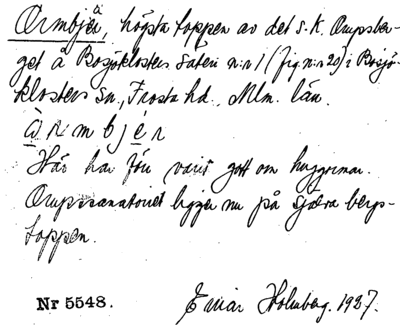 Ormbjär, högsta toppen av det s.k. Orupsber-
get å Bosjöklosters säteri n:r 1 (fig. n:r 20) i Bosjö-
klosters sn, Frosta hd, Mlm. län.
à r m b j é r
Här har förr varit gott om huggormar.
Orupssanatoriet ligger nu på själva bergs-
toppen.
Nr 5548. Einar Holmberg. 1927.